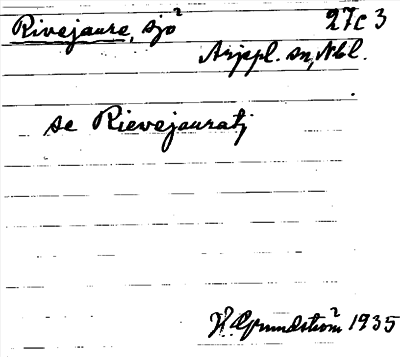 Rivejaure, sjö 27C3
Arjepl. sn, Nbl.
se Rievejauratj
H. Grundström 1935